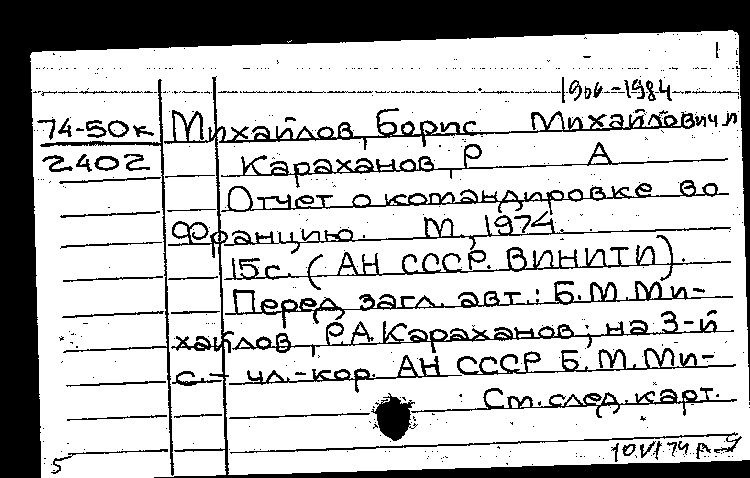 1906-1984
74-50к Михайлов, Борис Михайлович и
2402 Караханов, Р А
Отчет о командировке во
Францию. М., 1974.
15с. (АН СССР. ВИНИТИ).
Перед загл. авт.: Б.М.Ми-
хайлов, Р.А.Караханов; на 3-й
с. - чл.-кор. АН СССР Б.М.Ми-
См.след.карт.
5